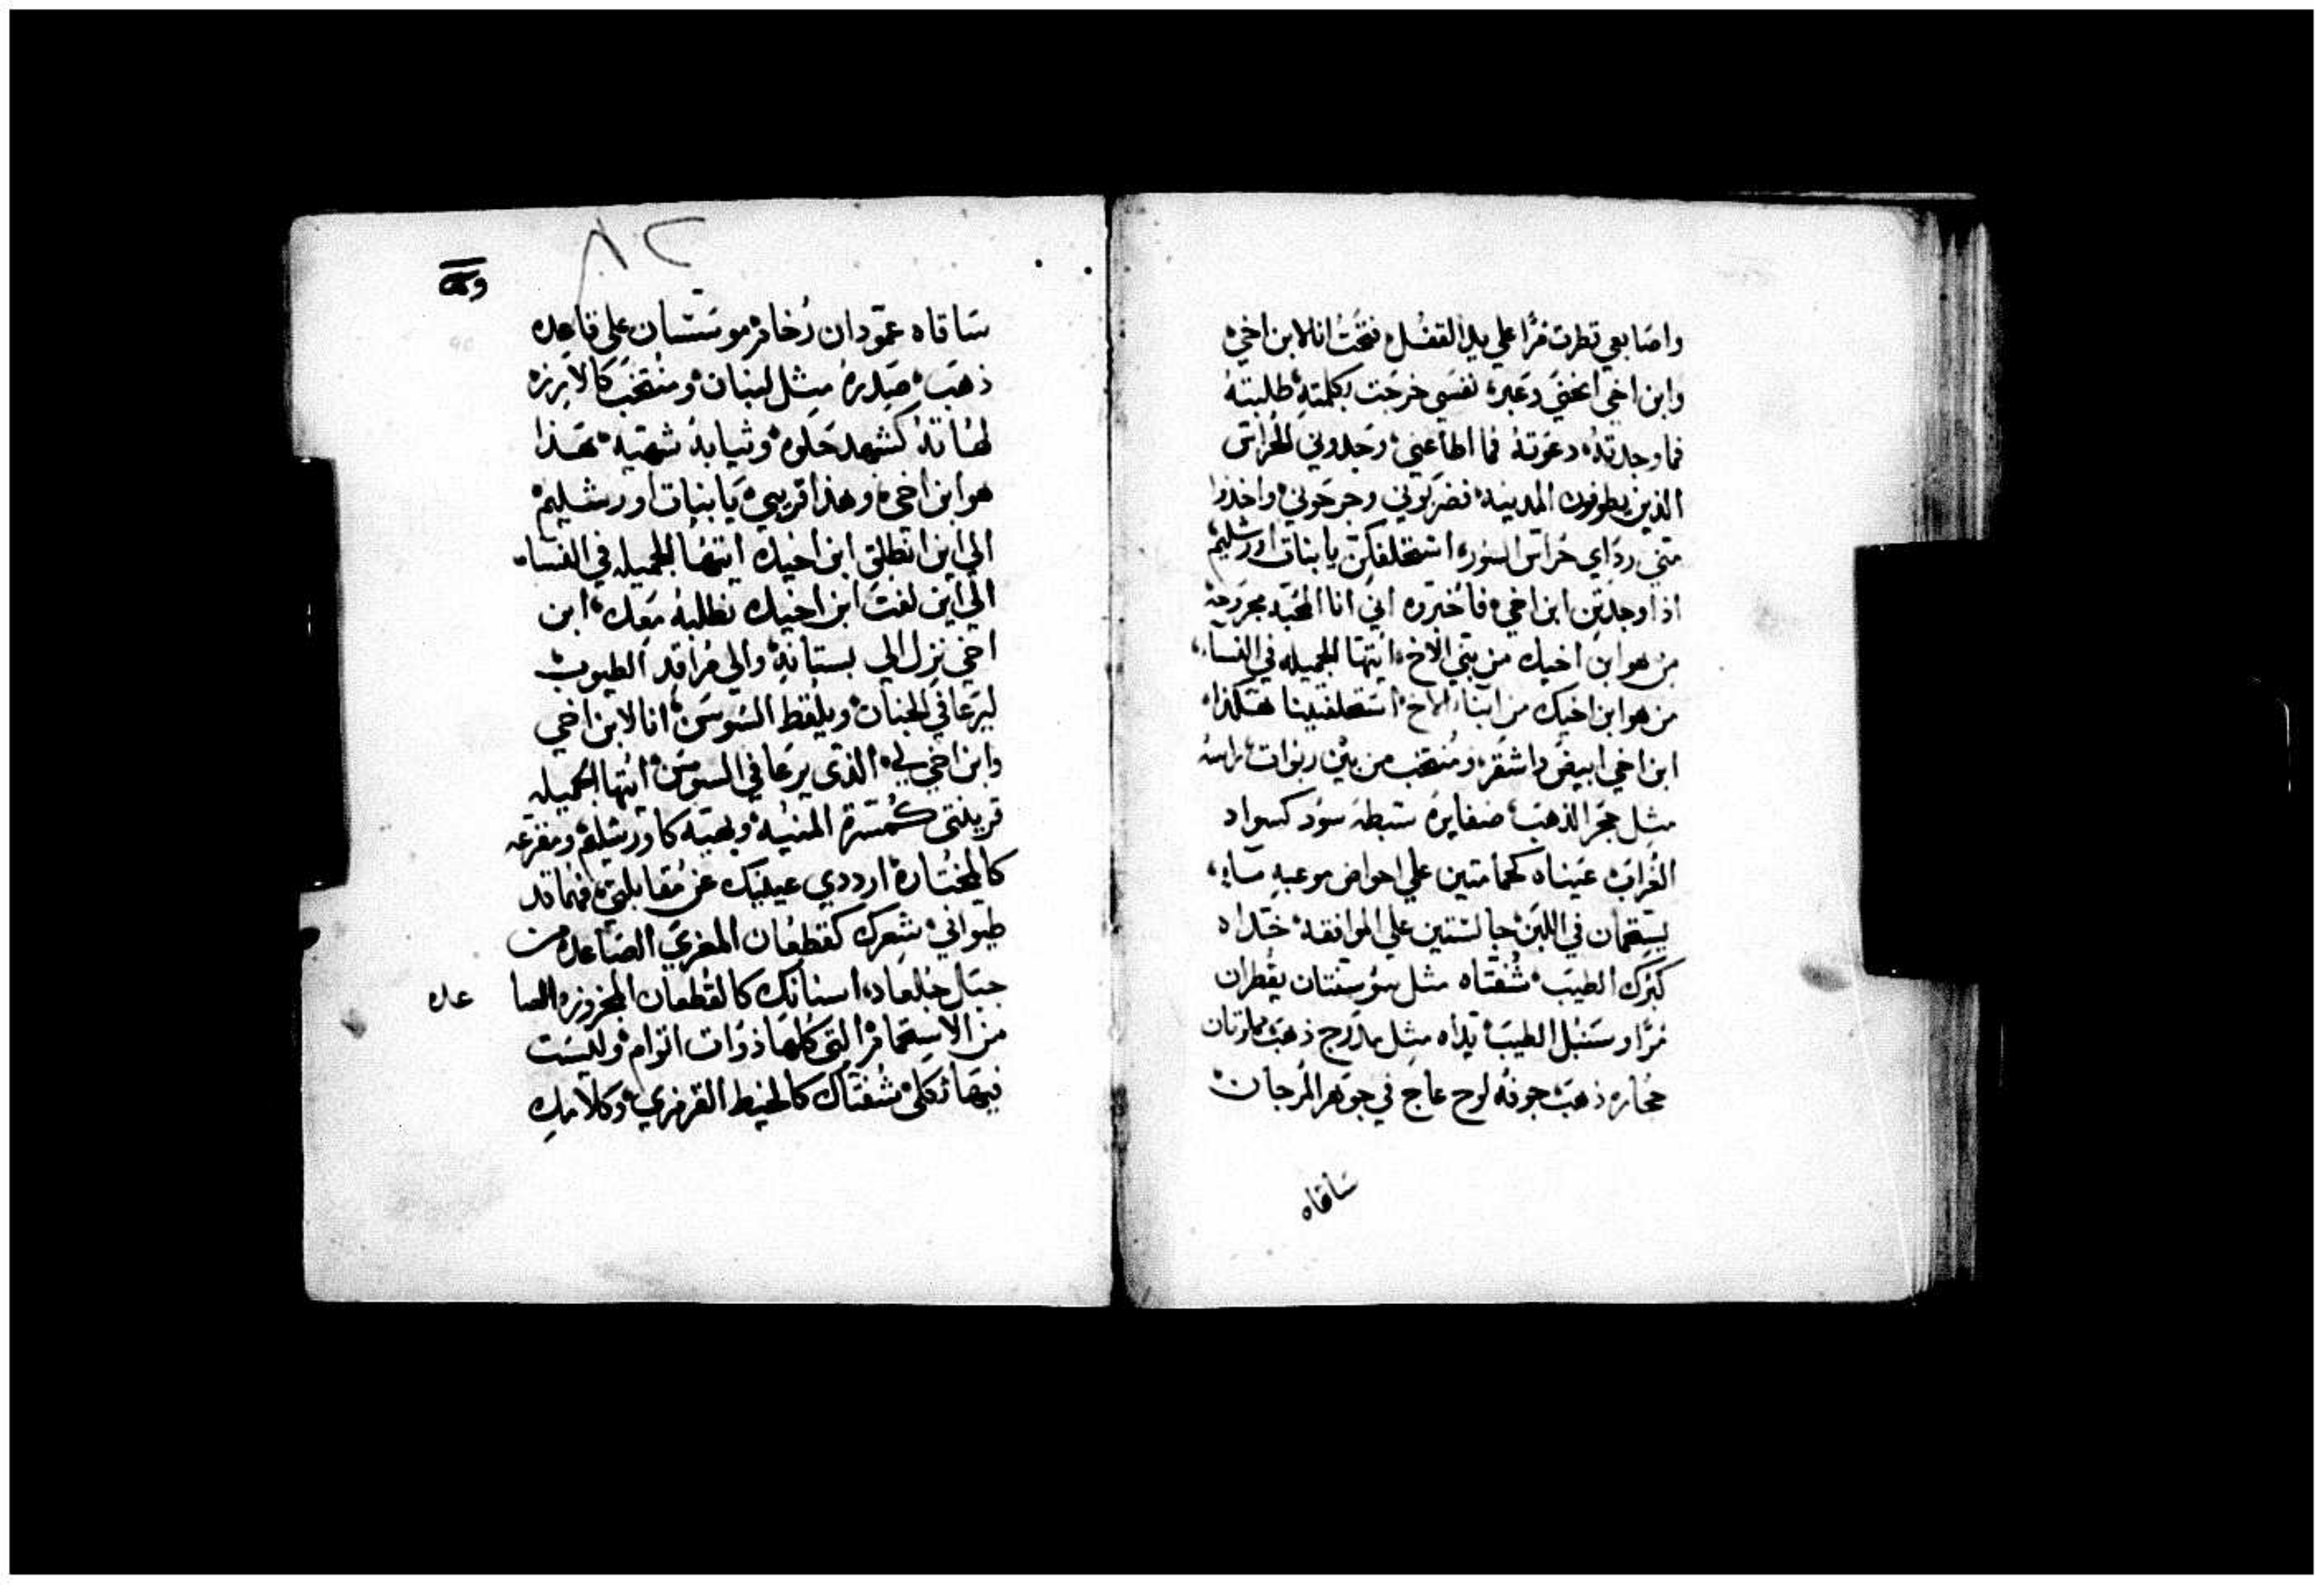 واصابعي تقطرت مرًا علي يد القفل فتحت انا لابن اخي
وابن اخي انحني وعبر نفسي خرجت بكلمته طلبته
فما وجدته دعوته فما اطاعني وجدوني الحراس
الذين يطوفون المدينه فضربوني وجرحوني واخذوا
مني رداي حراس السور استحلفكن يا بنات اورشليم
اذا وجدتن ابن اخي فاخبروه اني انا المحبه مجروحه
من هو ابن اخيك من بني الاخ ايتها الجميله في النساء
من هو ابن اخيك من ابناء الاخ استحلفتينا هكذا
ابن اخي ابيض واشقر ومنتخب من بين ربوات راسه
مثل حجر الذهب ضفايره سبطه سود كسواد
الغراب عيناه كحمامتين علي احواض موعبه مياه
يستحمان في اللبن جالستين علي الموافقه خداه
كبرك الطيب شفتاه مثل سوسنتان يقطران
مرًا وسنبل الطيب يداه مثل مدارج ذهب مملوتان
حجاره ذهب جوفه لوح عاج في جوهر المرجان
ساقاه
٨٢
ساقاه عمودان رخام موسستان علي قاعده
ذهب صدره مثل لبنان ومنتخب كالارز
لهاته كشهد حلوه وثيابه شهيه هذا
هو ابن اخي وهذا قريبي يا بنات اورشليم
الي اين انطلق ابن اخيك ايتها الجميله في النساء
الي اين لفت ابن اخيك نطلبه معك ابن
اخي نزل الي بستانه والي مراقد الطيوب
ليرعا في الجنان ويلقط السوسن انا لابن اخي
وابن اخي لي الذي يرعا في السوسن ايتها الجميله
قرينتي كمسرة المنيه وبهيه كاورشليم ومفزعه
كالمختاره ارددي عينيك عن مقابلتي فهما قد
طيواني شعرك كقطعان المعزي الصاعده من
جبل جلعاد اسنانك كالقطعان المجزوزه الصا عده
من الاستحمام التي كلها ذوات اتوام وليست
فيها ثكلي شفتاك كالخيط القرمزي وكلامك